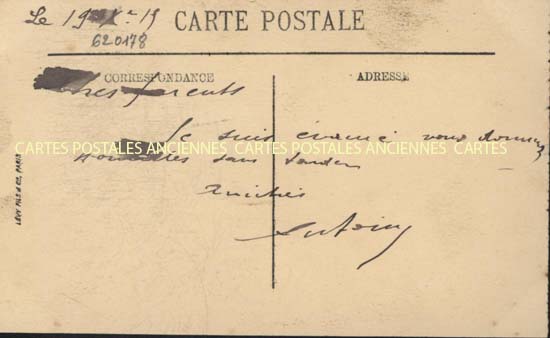 Le 19 Xre 19
CARTE POSTALE
620178
CORRESPONDANCE
ADRESSE
parents
Je suis vous
CARTES POSTALES ANCIENNES CARTES POSTALES ANCIENNES CARTES
nouvelles sans tarder
Amitiés
Antoine
LÉVY FILS & Cie, PARIS